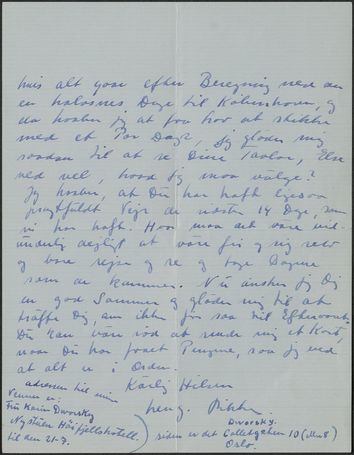 hvis alt gaar efter Beregning ned om
en halvsnes Dage til København, og
da haaber jeg at faa Lov at stikke
ned et Par Dage? Jeg glæder mig
saadan til at se Dine Tavler, Else
ved vel, hvad jeg maa vælge?
Jeg haaber, at Du har haft ligesaa
pragtfuldt Vejr de sidste 14 Dage, som
vi har haft. Hvor maa det være vid-
underlig dejligt at være fri og sig selv
og bare rejse og se og tage Dagene
som de kommer. Nu ønsker jeg Dig
en god Sommer og glæder mig til at
træffe Dig, om ikke før saa til Efteraaret.
Du kan være sød at sende mig et Kort,
naar Du har faaet Pengene, saa jeg ved
at alt er i Orden.
Kærlig Hilsen
adressen til min
Veninde er:
Frü Karin Dworsky
Nystuen Høifjellshotell.
til den 21-7.
siden er det Colletsgaten 10
Dworsky.
Oslo.